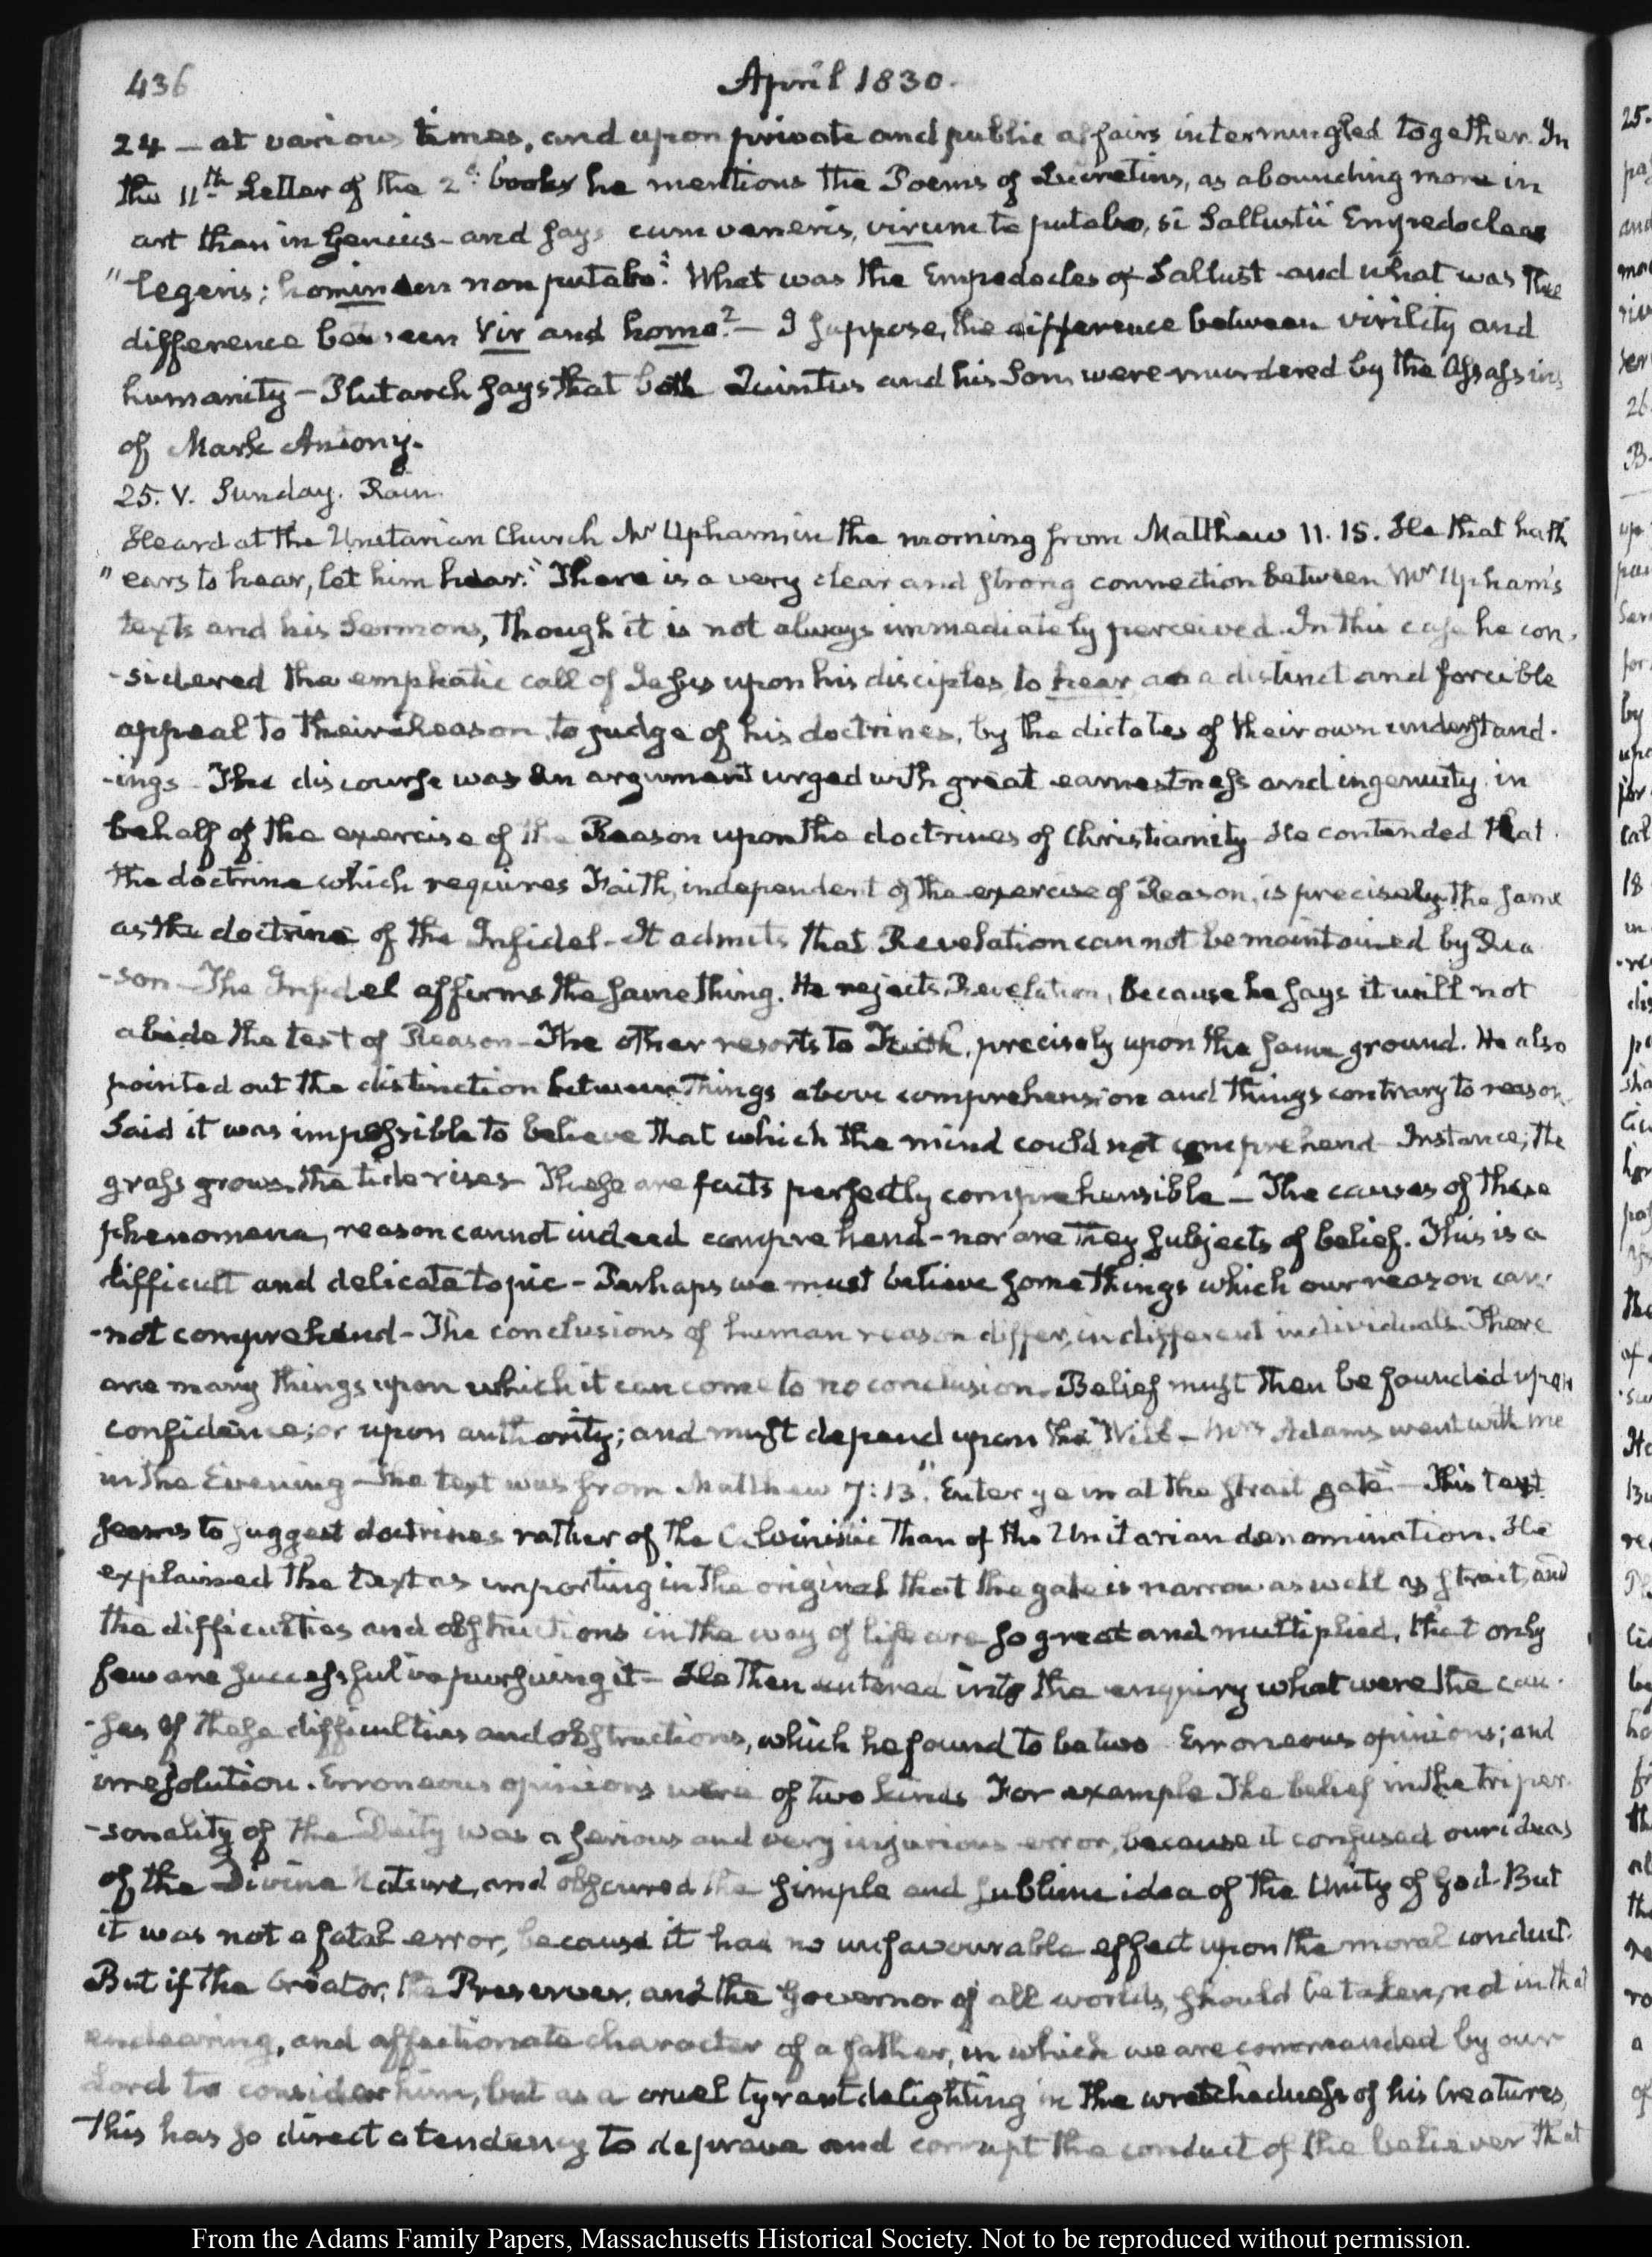 436
April 1830.
24 — at various times, and upon private and public affairs intermingled together. In
the 11th Letter of the 2d. books he mentions the Poems of Lucretius, as abounding more in
art than in Genius - and says cum veneris, virum te putabo, si Sallustii Empedoclea
"legeris; hominem non putabo." What was the Empedocles of Sallust and what was the
difference between Vir and homo? — I suppose, the difference between virility and
humanity — Plutarch says that both Quintus and his Son were murdered by the Assassins
of Mark Antony.
25. V. Sunday. Rain.
Heard at the Unitarian Church Mr Upham, in the morning from Matthew 11. 15. He that hath
"ears to hear, let him hear." There is a very clear and strong connection between Mr Upham's
texts and his Sermons, though it is not always immediately perceived. In this case he con-
-sidered the emphatic call of Jesus upon his disciples, to hear, as a distinct and forcible
appeal to their reason, to judge of his doctrines, by the dictates of their own understand-
-ings. The discourse was an argument urged with great earnestness and ingenuity in
behalf of the exercise of the Reason upon the doctrines of Christianity. He contended that
the doctrine which requires Faith, independent of the exercise of Reason, is precisely the same
as the doctrine of the Infidel - It admits that Revelation cannot be maintained by Rea
-son - The Infidel affirms the same thing. He rejects Revelation, because he says it will not
abide the test of Reason - The other resorts to Faith, precisely upon the same ground. He also
pointed out the distinction between things above comprehension and things contrary to reason.
Said it was impossible to believe that which the mind could not comprehend - Instance; the
grass grows, the tide rises - These are facts perfectly comprehensible — The causes of these
phenomena, reason cannot indeed comprehend - nor are they subjects of belief. This is a
difficult and delicate topic - Perhaps we must believe some things which our reason can-
-not comprehend - The conclusions of human reason differ, in different individuals. There
are many things upon which it can come to no conclusion. Belief must then be founded upon
confidence; or upon authority; and must depend upon the Will - Mrs Adams went with me
in the Evening - The text was from Matthew 7:13. "Enter ye in at the strait gate" - This text
seems to suggest doctrines rather of the Calvinistic than of the Unitarian denomination. He
explained the text as importing in the original that the gate is narrow as well as strait, and
the difficulties and obstructions in the way of life are so great and multiplied, that only
few are successful in pursuing it - He then entered into the enquiry what were the cau-
-ses of these difficulties and obstructions, which he found to be two Erroneous opinions; and
irresolution. Erroneous opinions were of two kinds For example The belief in the triper-
-sonality of the Deity was a serious and very injurious error, because it confused our ideas
of the Divine Nature, and obscured the simple and sublime idea of the Unity of God. But
it was not a fatal error, because it had no unfavourable effect upon the moral conduct.
But if the Creator, the Preserver, and the Governor of all worlds, should be taken, not in that
endearing, and affectionate character of a father, in which we are commanded by our
Lord to consider him, but as a cruel tyrant delighting in the wretchedness of his Creatures,
This has so direct a tendency to deprave and corrupt the conduct of the believer that
From the Adams Family Papers, Massachusetts Historical Society. Not to be reproduced without permission.